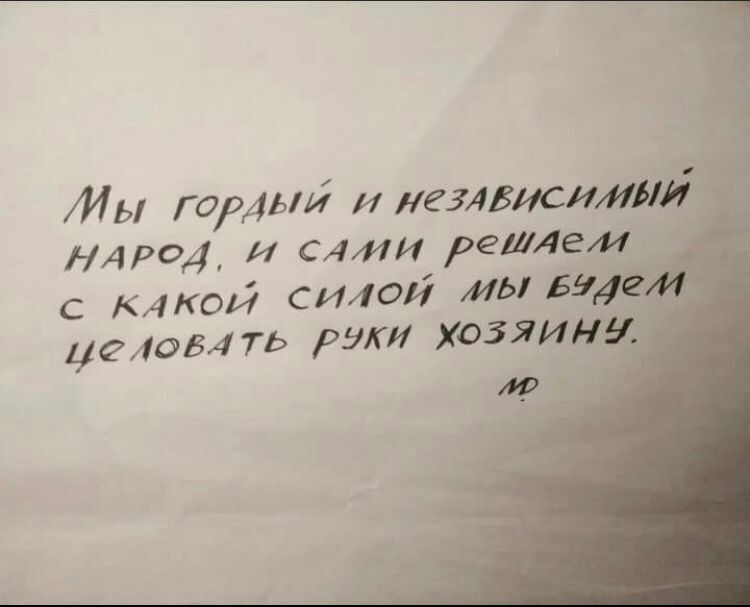 Мы гордый и независимый
народ, и сами решаем
с какой силой мы будем
целовать руки хозяину.
МР